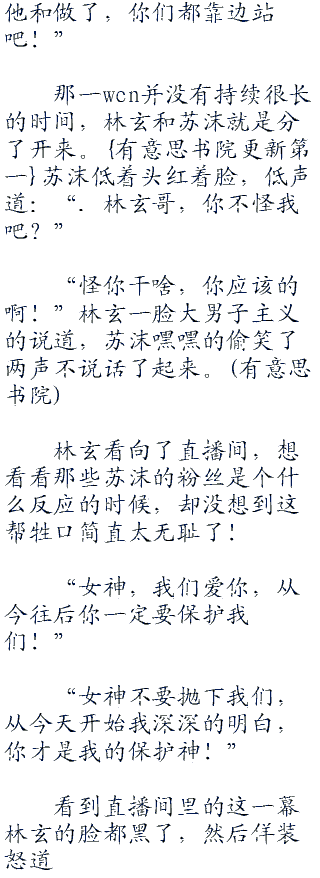 他和做了，你们都靠边站
吧！”
那一wcn并没有持续很长
的时间，林玄和苏沫就是分
了开来。{有意思书院更新第
一}苏沫低着头红着脸，低声
道：“．林玄哥，你不怪我
吧？”
“怪你干啥，你应该的
啊！”林玄一脸大男子主义
的说道，苏沫嘿嘿的偷笑了
两声不说话了起来。(有意思
书院)
林玄看向了直播间，想
看看那些苏沫的粉丝是个什
么反应的时候，却没想到这
帮牲口简直太无耻了！
“女神，我们爱你，从
今往后你一定要保护我
们！”
“女神不要抛下我们，
从今天开始我深深的明白，
你才是我的保护神！”
看到直播间里的这一幕
林玄的脸都黑了，然后佯装
怒道